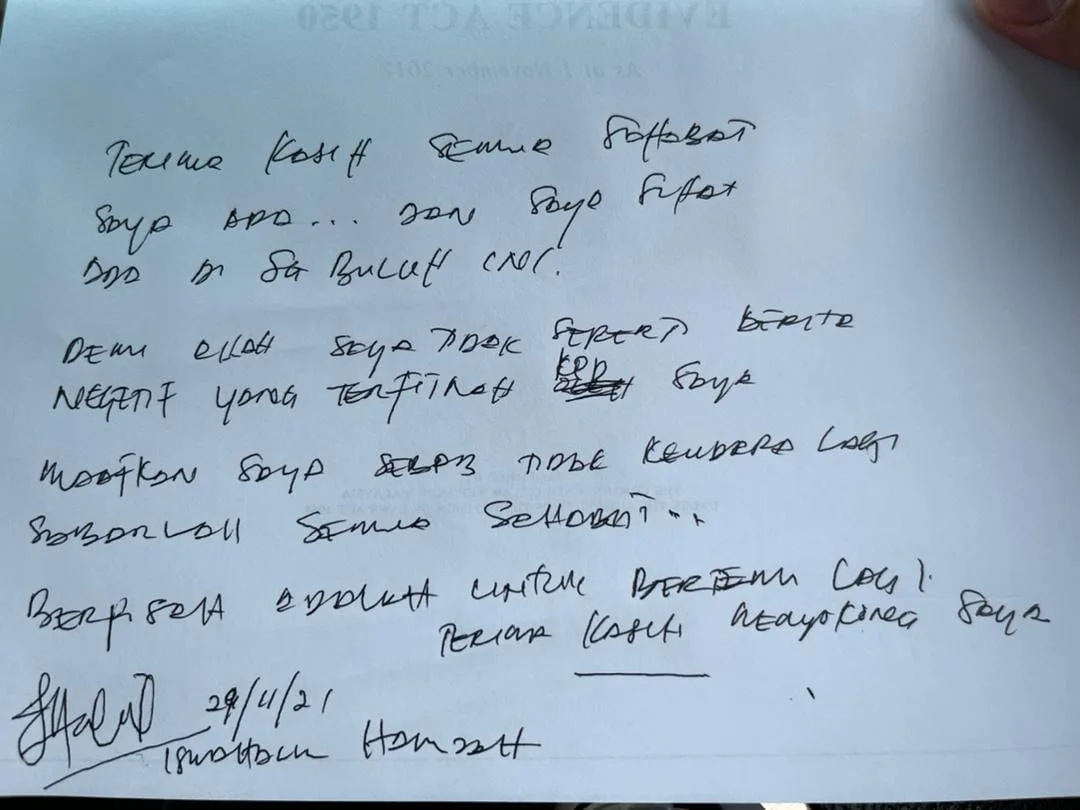 EVIDENCE ACT 1950
As at 1 November 2017
TERIMA KASIH SEMUA SAHABAT
SAYA ADA... DAN SAYA SIHAT
ADA DI SG BULUH INI.
DEMI ALLAH SAYA TIDAK SEPERTI BERITA
NEGETIF YANG TERFITNAH KPD SAYA
MAAFKAN SAYA SEBAB TIDAK LAGI
SABARLAH SEMUA SAHABAT...
BERPISAH ADALAH UNTUK BERTEMU LAGI.
TERIMA KASIH MENYOKONG SAYA
29/11/21
ISMAHALIM HAMZAH